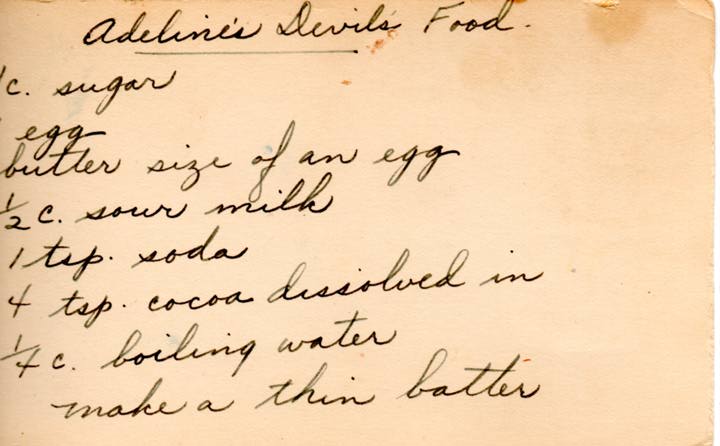 Adeline's Devil's Food.
1 c. sugar
egg
butter size of an egg
1/2 c. sour milk
1 tsp. soda
4 tsp. cocoa dissolved in
1/4 c. boiling water
make a thin batter